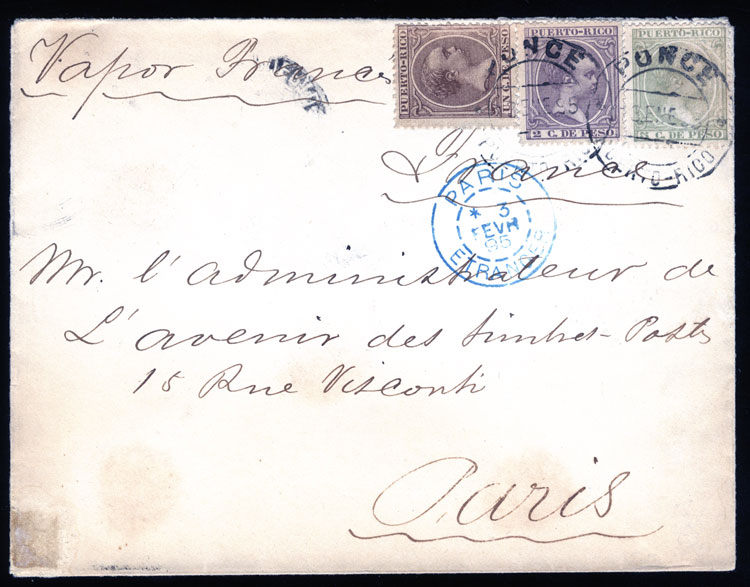 Vapor France
PUERTO-RICO
UN C. DE PESO
PUERTO-RICO
2 C. DE PESO
PUERTO-RICO
C. DE PESO
PONCE
95
PONCE
ENE
PUERTO-RICO
France
PARIS
* 3
FEVR
95
ETRANGER
Mr. l'administrateur de
L'avenir des timbres-Poste
15 Rue Visconti
Paris